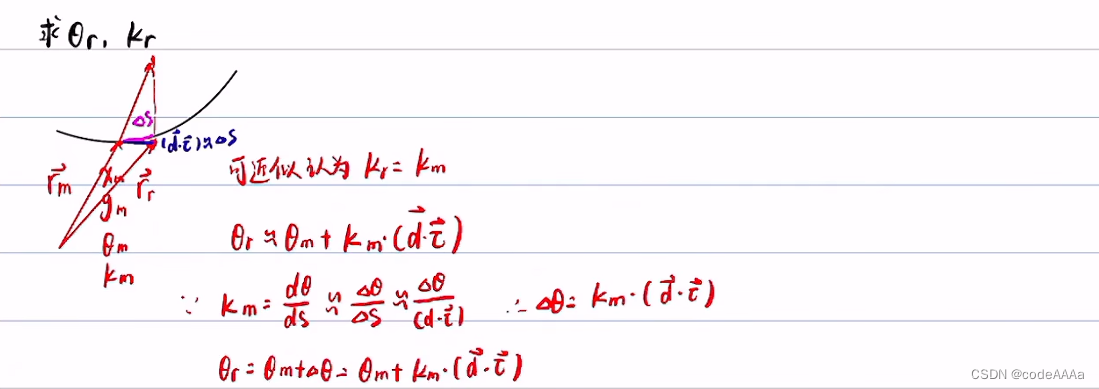 求θr, kr
ΔS
(d⃗·τ⃗)≈ΔS
r⃗m
xm
r⃗r
ym
θm
km
可近似认为 kr = km
θr ≈ θm + km·(d⃗·τ⃗)
∵ km = dθ/ds ≈ Δθ/ΔS ≈ Δθ/(d·τ⃗) ∴ Δθ = km·(d⃗·τ⃗)
θr = θm+Δθ = θm + km·(d⃗·τ⃗)
CSDN @codeAAAa